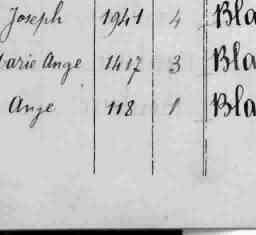 Joseph 1941 4 Bla
Marie Ange 1417 3 Bla
Ange 118 1 Bla